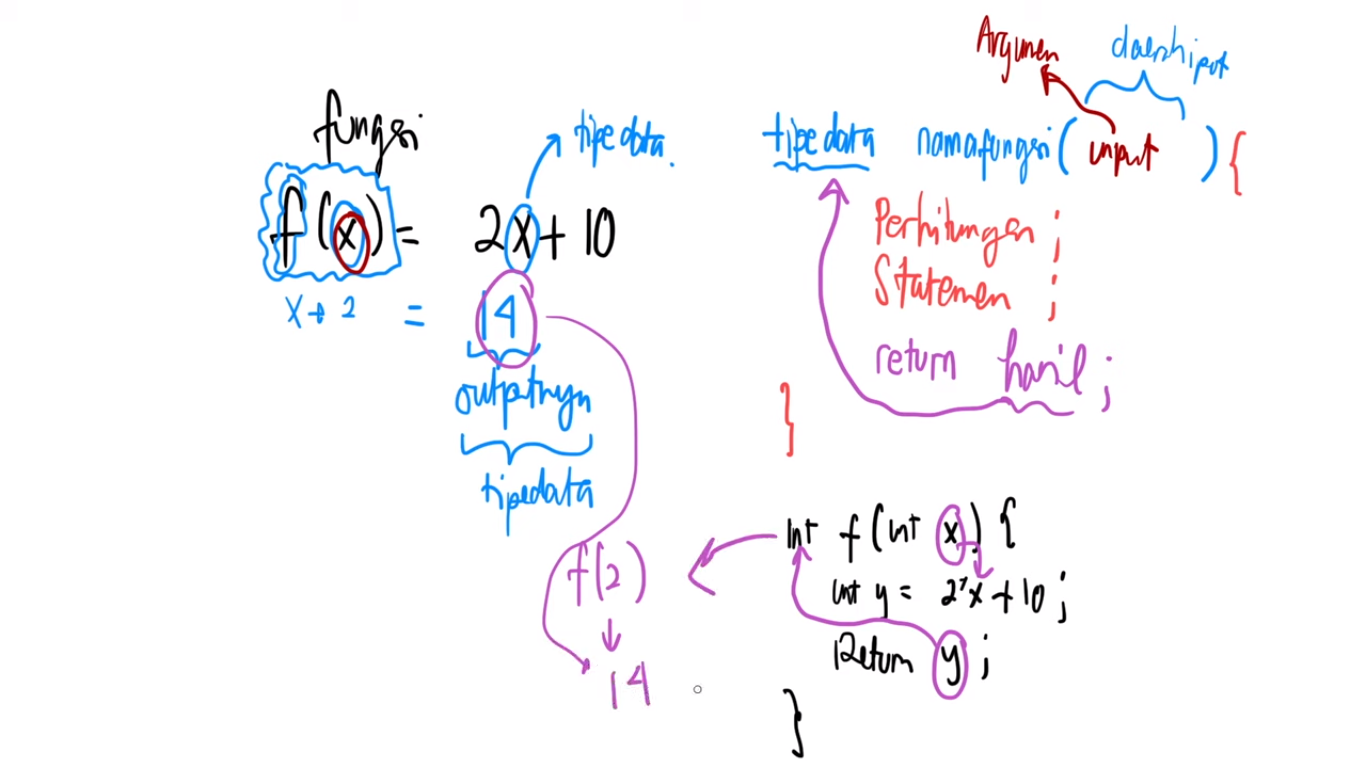 fungsi
f(x) = 2x + 10
tipe data.
x → 2 = 14
outputnya
tipe data
f(2)
↓
14
Argumen
daerah input
tipe data namafungsi( input ) {
Perhitungan ;
Statemen ;
return hasil ;
}
Int f(int x) {
int y = 2*x + 10 ;
Return y ;
}